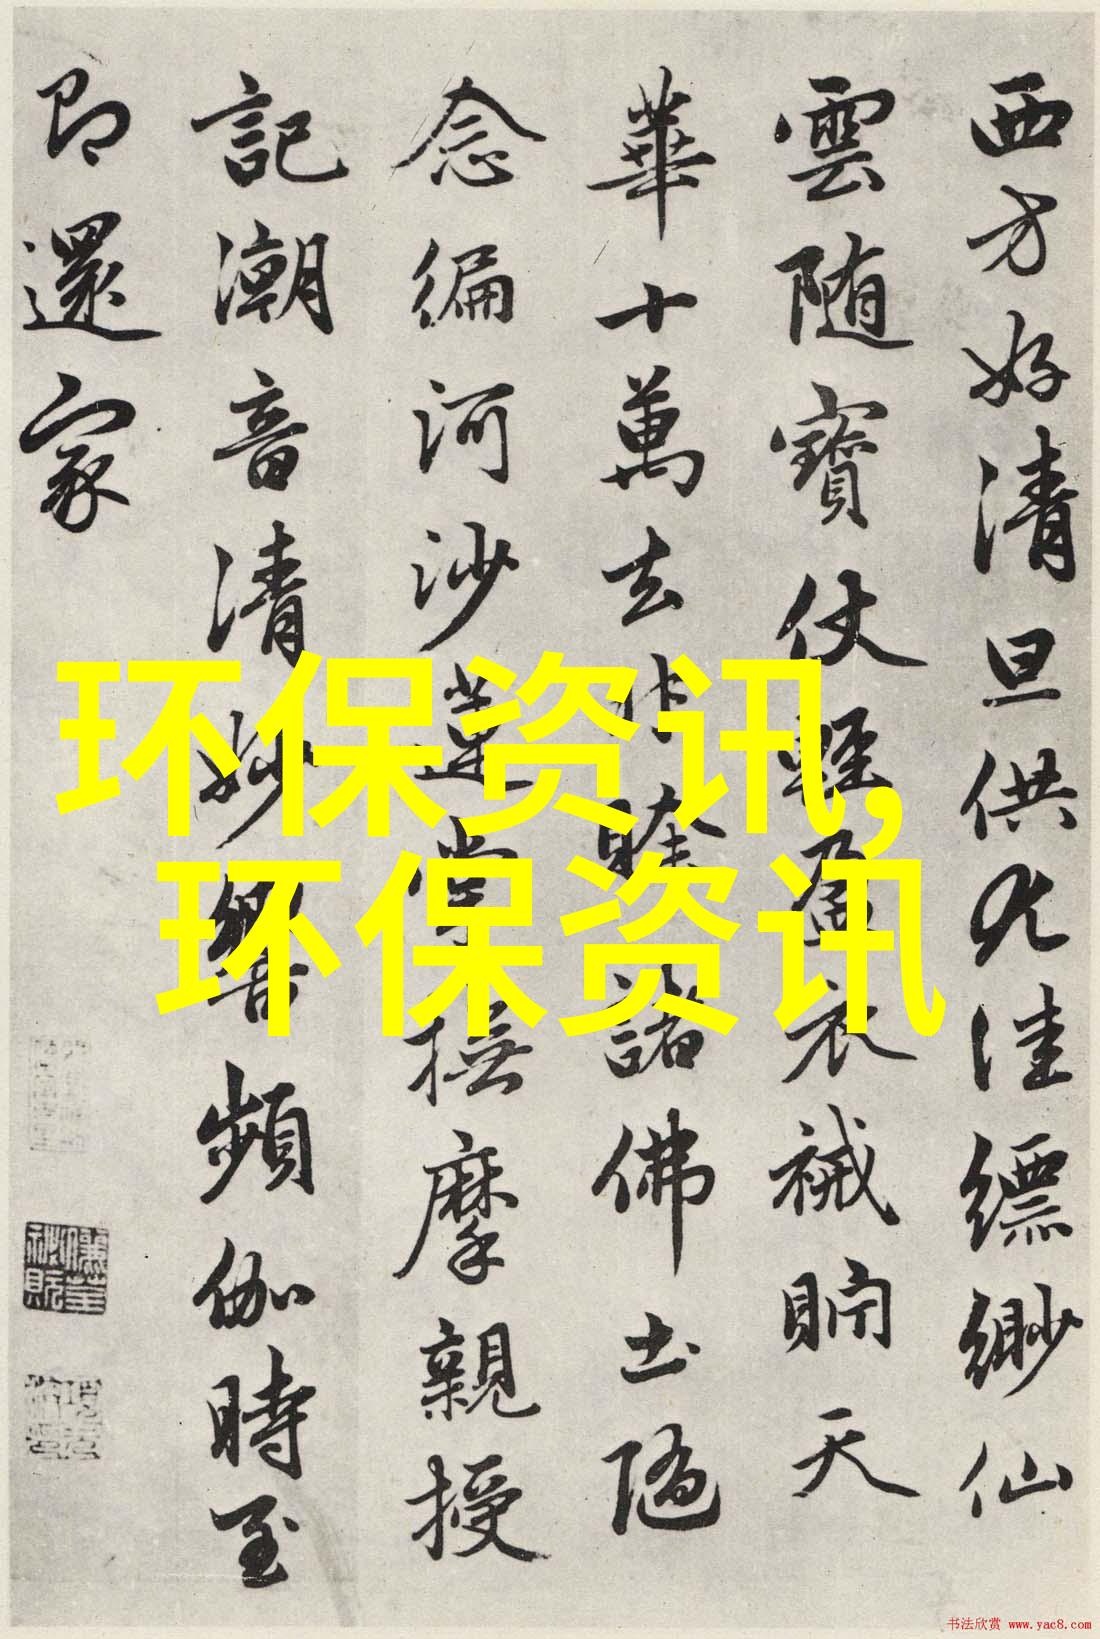 西方好清旦供尤佳縹緲仙
雲随寶仗輕盈衣裓貯天
華十萬去非賒諸佛土隨
念編河沙蓮掌撫摩親授
記潮音清妙響頻伽時至
即還家
环保资讯,
环保资讯
书法欣赏 www.yac8.com